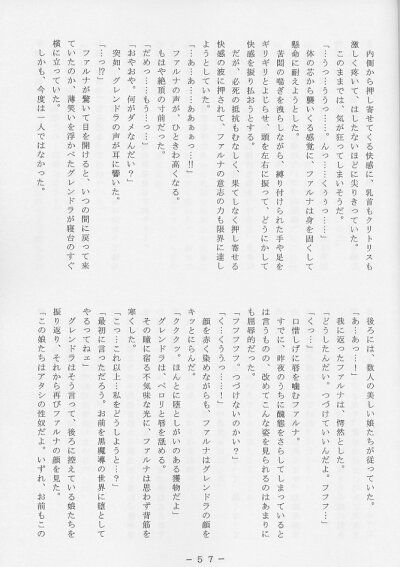 内側から押し寄せてくる快感に、乳首もクリトリスも
激しく疼いて、はしたないほどに尖りきっていた。
このままでは、気が狂ってしまいそうだ。
「…うっ…うううっ……んっ…くぅぅっ…」
体の芯から襲いくる感覚に、ファルナは身を固くして
懸命に耐えようとした。
苦悶の喘ぎを洩らしながら、縛り付けられた手や足を
ギリギリとよじらせ、頭を左右に振って、どうにかして
快感を振り払おうとする。
だが、必死の抵抗もむなしく、果てしなく押し寄せる
快感の波に押されて、ファルナの意志の力も限界に達し
ようとしていた。
「…あ…ああ……あぁぁっ…!!」
ファルナの声が、ひときわ高くなる。
もはや絶頂の寸前だった。
「だめっ……もう…っ…」
「おやおや。何がダメなんだい？」
突如、グレンドラの声が耳に響いた。
「…っ!?」
ファルナが驚いて目を開けると、いつの間に戻って来
ていたのか、薄笑いを浮かべたグレンドラが寝台のすぐ
横に立っていた。
しかも、今度は一人ではなかった。
後ろには、数人の美しい娘たちが従っていた。
「あ…あっ…！」
我に返ったファルナは、愕然とした。
「どうしたんだい。つづけていいんだよ。フフフ…」
「くっ…」
口惜しげに唇を噛むファルナ。
すでに、昨夜のうちに醜態をさらしてしまっていると
は言うものの、改めてこんな姿を見られるのはあまりに
も屈辱的だった。
「フフフフフ。つづけないのかい？」
「く…くううっ……！」
顔を赤く染めながらも、ファルナはグレンドラの顔を
キッとにらんだ。
「ククッ。ほんとに堕としがいのある獲物だよ」
グレンドラは、ペロリと唇を舐める。
その瞳に宿る不気味な光に、ファルナは思わず背筋を
寒くした。
「こっ…これ以上…私をどうしようと…？」
「最初に言っただろう。お前を黒魔導の世界に堕として
やるってねェ」
グレンドラはそう言って、後ろに控えている娘たちを
振り返り、それから再びファルナの顔を見た。
「この娘たちはアタシの性奴だよ。いずれ、お前もこの
－５７－